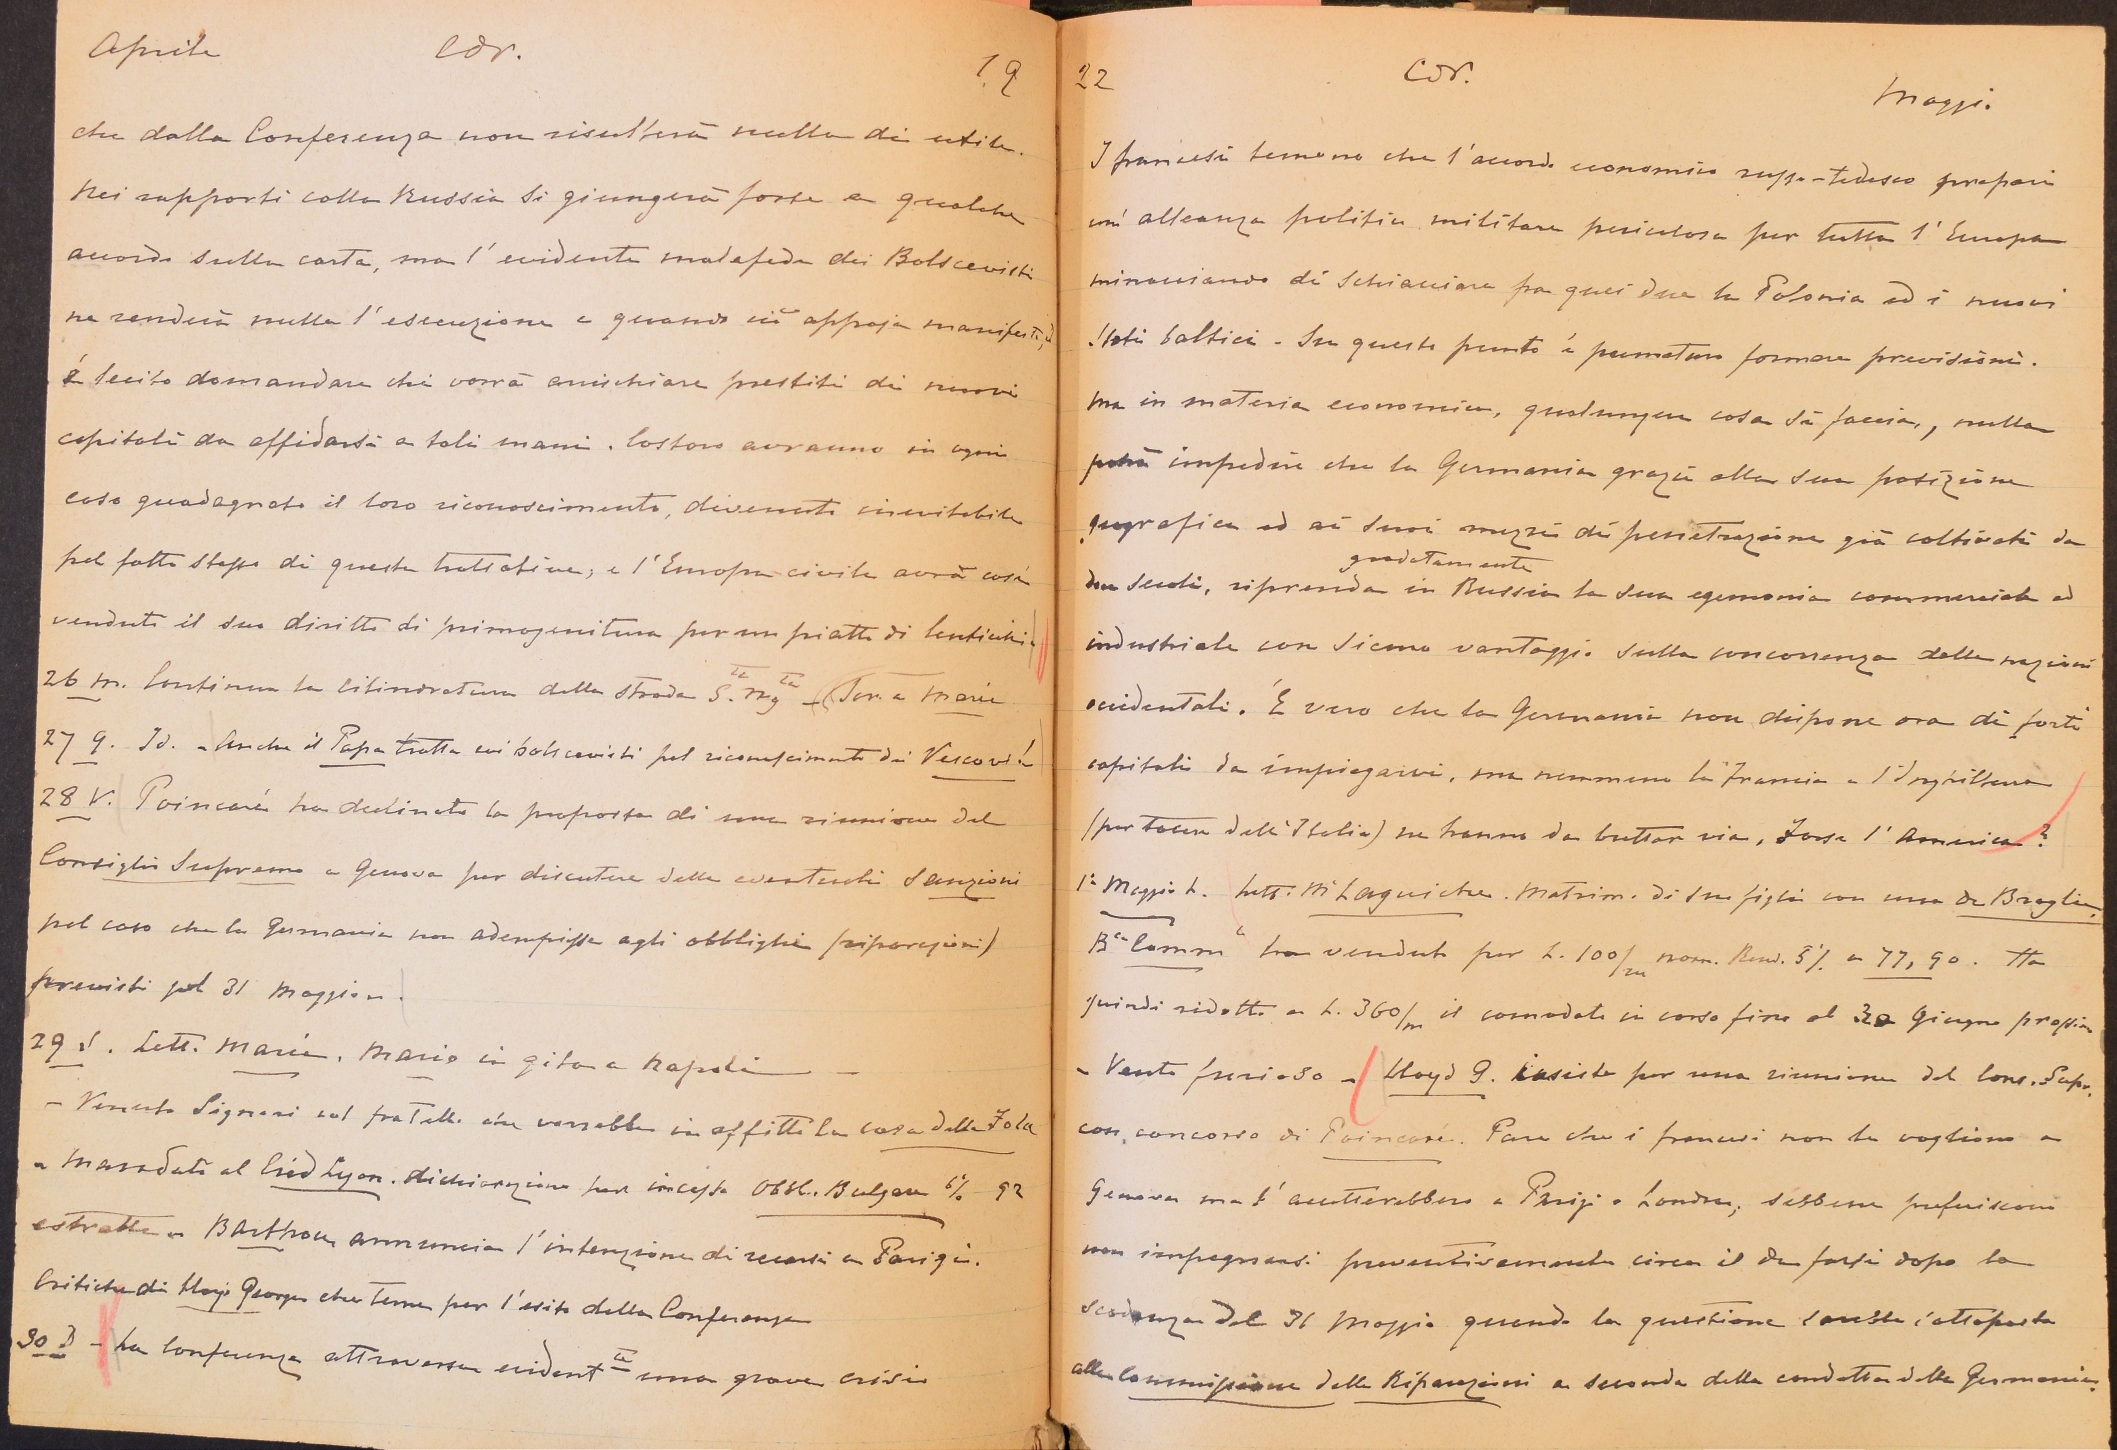 Aprile Cor. 19
che dalla Conferenza non risulterà nulla di utile.
Nei rapporti colla Russia si giungerà forse a qualche
accordo sulla carta, ma l'evidente malafede dei Bolscevisti
ne renderà nulla l'esecuzione e quando ciò appaja manifesto,
è lecito domandare chi vorrà arrischiare prestiti di nuovi
capitali da affidarsi a tali mani. Costoro avranno in ogni
caso guadagnato il loro riconoscimento, divenuto inevitabile
pel fatto stesso di queste trattative; e l'Europa civile avrà così
venduto il suo diritto di primogenitura per un piatto di lenticchie
26 M. Continua la cilindratura della strada S. Mg - Scr. a Marie
27 G. Id. - Anche il Papa tratta coi bolscevisti pel riconoscimento dei Vescovi!
28 V. Poincaré ha declinato la proposta di una riunione del
Consiglio Supremo a Genova per discutere delle eventuali Sanzioni
pel caso che la Germania non adempisse agli obblighi (riparazioni)
previsti pel 31 Maggio.
29 S. Lett. Marie. Mario in gita a Napoli -
- Venuto Signori col fratello che vorrebbe in affitto la casa della Fola
- Mandati al Créd Lyon. dichiarazione per incasso Obbl. Bulgare 6% 92
estratte - Barthou annuncia l'intenzione di recarsi a Parigi.
Critiche di Lloyd George che teme per l'esito della Conferenza
30 D - La Conferenza attraversa evident.te una grave crisi
22 Cor. Maggio
I francesi temono che l'accordo economico russo-tedesco prepari
un'alleanza politica militare pericolosa per tutta l'Europa
minacciando di schiacciare fra quei due la Polonia ed i nuovi
Stati baltici - Su questo punto è prematuro formare previsioni.
Ma in materia economica, qualunque cosa si faccia, nulla
potrà impedire che la Germania grazie alla sua posizione
geografica ed ai suoi mezzi di penetrazione già coltivati da
due secoli, riprenda gradatamente in Russia la sua egemonia commerciale ed
industriale con sicuro vantaggio sulla concorrenza delle nazioni
occidentali. È vero che la Germania non dispone ora di forti
capitali da impiegarvi, ma nemmeno la Francia e l'Inghilterra
(per tacere dell'Italia) ne hanno da buttar via, Forse l'America?
1° Maggio L. Lett. M Laguiche. Matrim. di sua figlia con una de Broglie.
Bca Comm ha venduto per L. 100/m nom. Rend. 5% a 77,90. Ha
quindi ridotto a L. 360/m il comodato in corso fino al 30 Giugno prossimo
- Vento furioso - Lloyd G. insiste per una riunione del Cons. Supr.
con concorso di Poincaré. Pare che i francesi non la vogliono a
Genova ma l'accetterebbero a Parigi o Londra, sebbene preferiscono
non impegnarsi preventivamente circa il da farsi dopo la
scadenza del 31 Maggio quando la questione sarebbe sottoposta
alla Commissione delle Riparazioni a seconda della condotta della Germania.